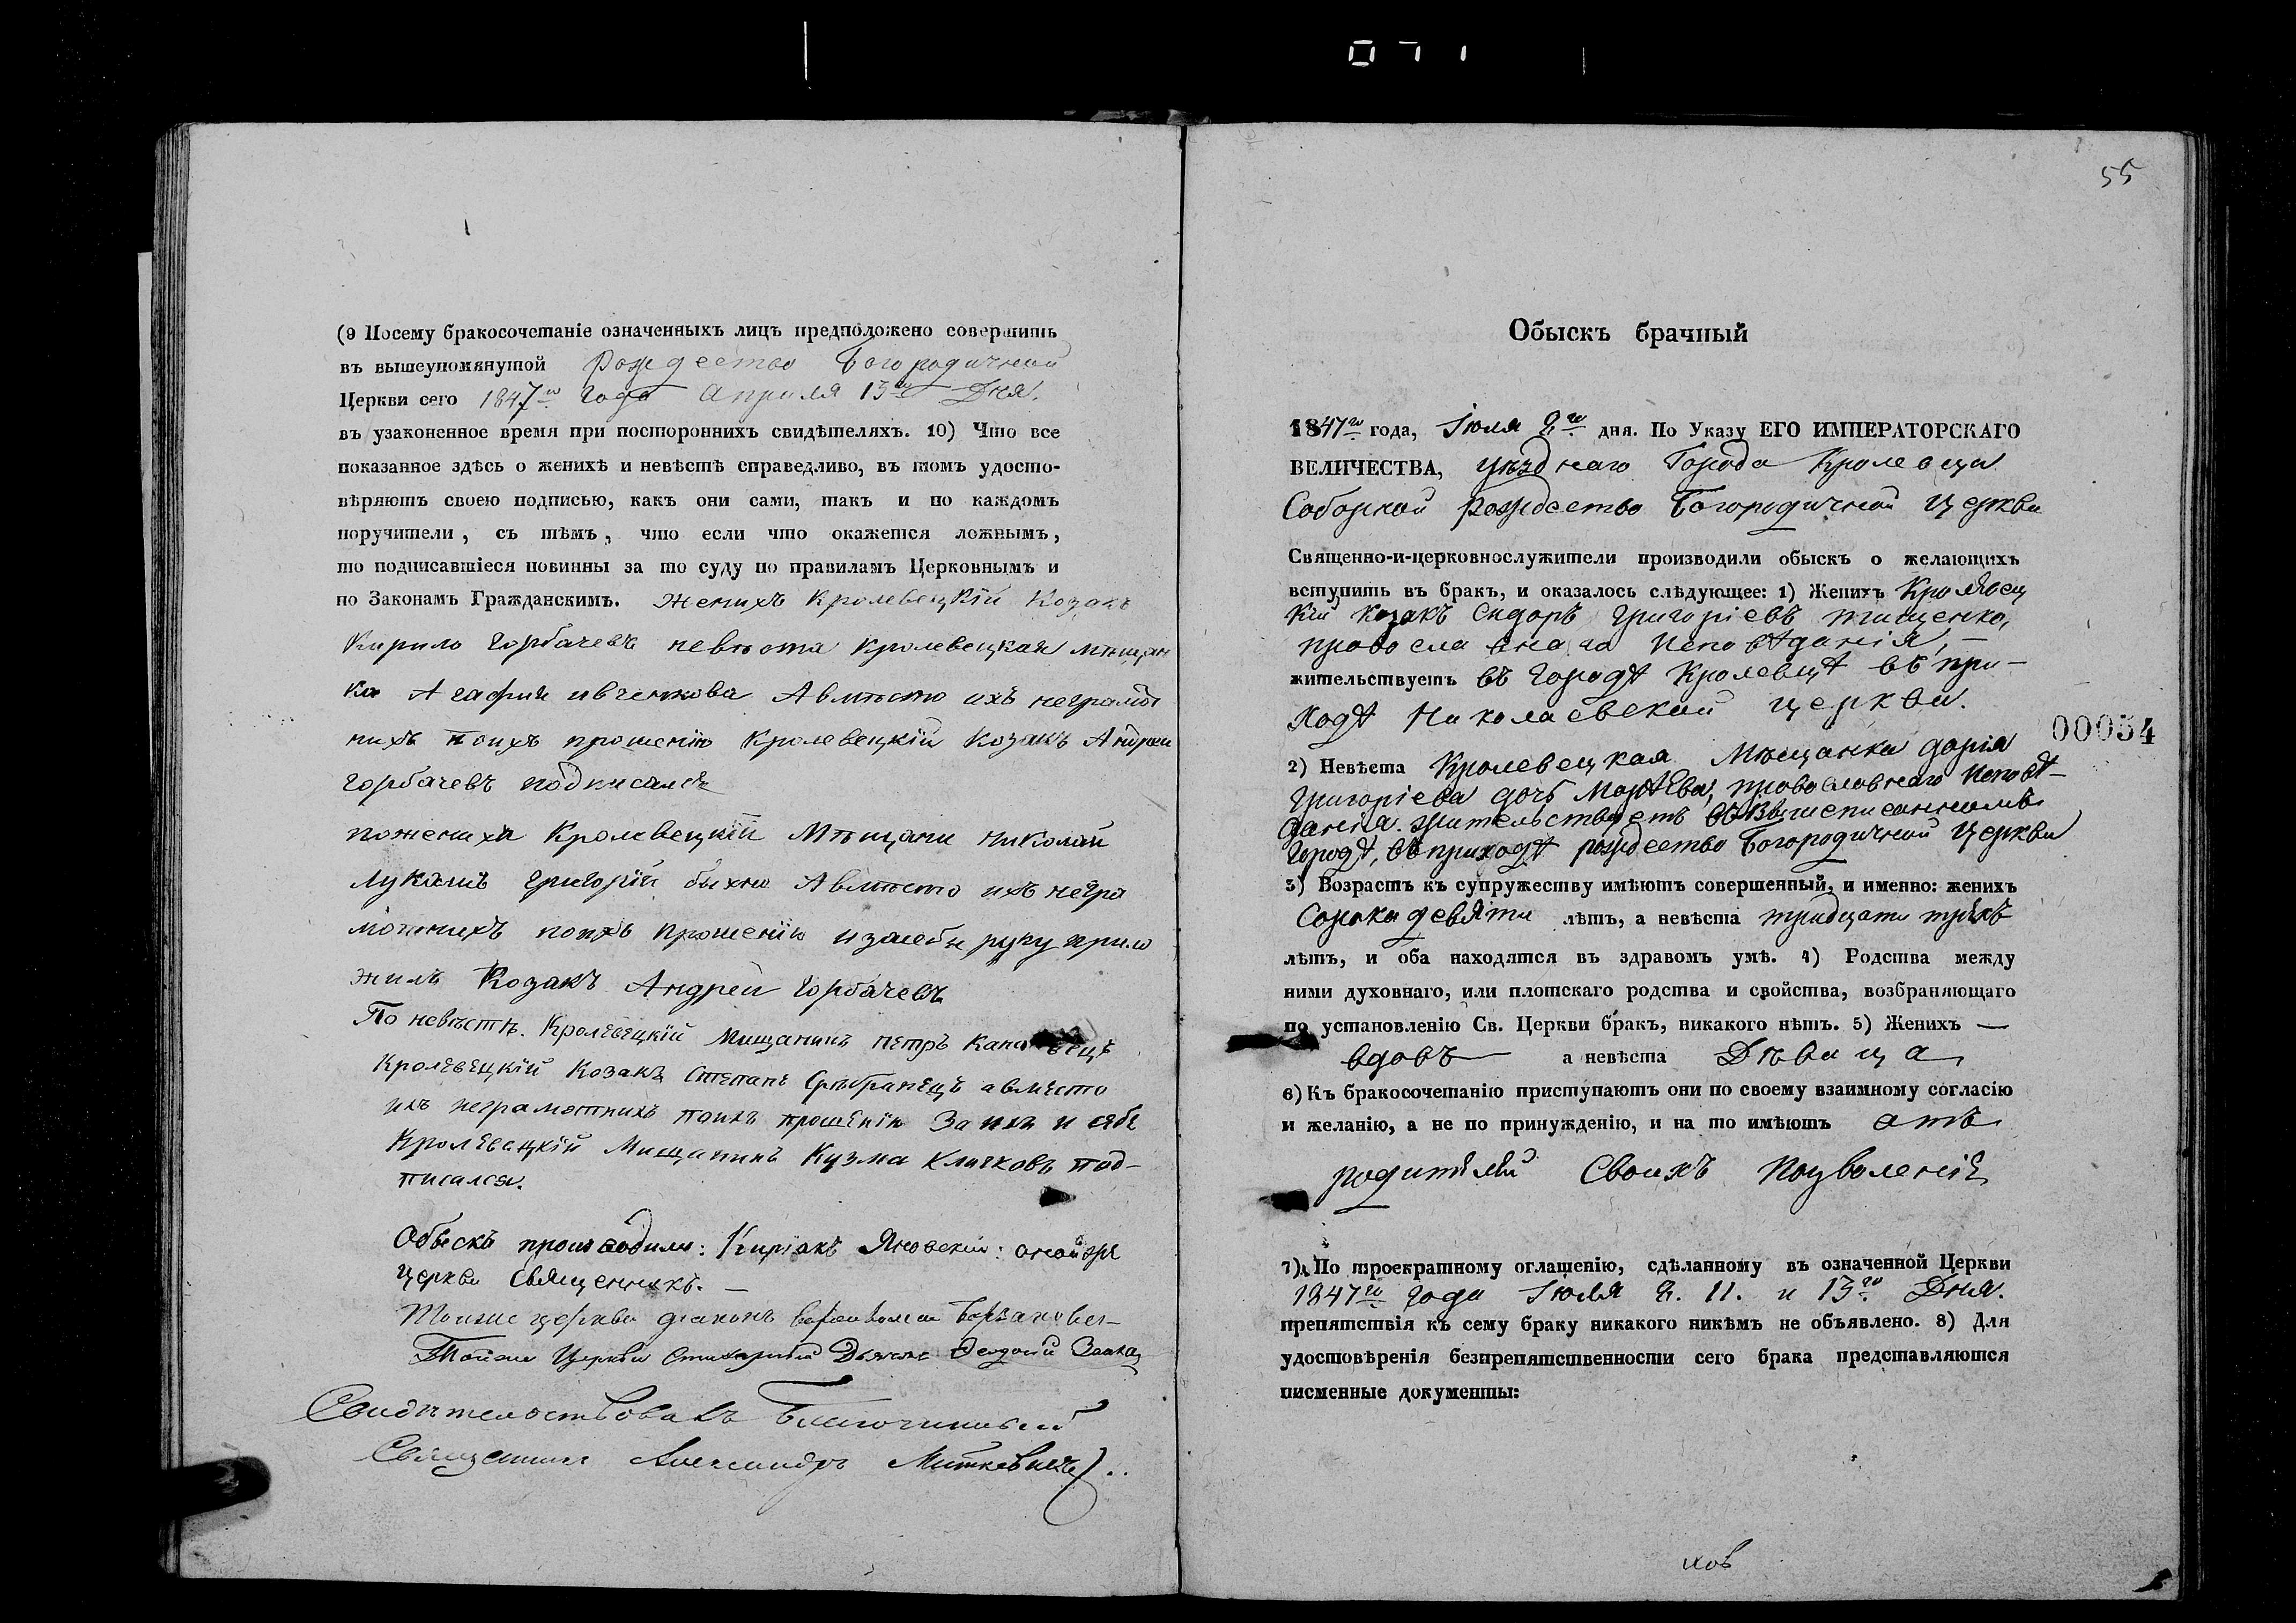 071
(9 Посему бракосочетаніе означенныхъ лицъ предположено совершить
въ вышеупомянутой Рождество Богородичной
Церкви сего 1847го года Апреля 13го Дня.
въ узаконенное время при постороннихъ свидѣтеляхъ. 10) Что все
показанное здѣсь о женихѣ и невѣстѣ справедливо, въ томъ удосто-
вѣряютъ своею подписью, какъ они сами, такъ и по каждомъ
поручители, съ тѣмъ, что если что окажется ложнымъ,
то подписавшіеся повинны за то суду по правиламъ Церковнымъ и
по Законамъ Гражданскимъ. Женихъ Кролевецкій Козакъ
Кирило Горбачевъ невѣста Кролевецкая мѣщан
ка Агафия ивченкова Авмѣсто ихъ неграмот
нихъ поихъ прошению Кролевецкій Козакъ Андрей
Горбачевъ подписался
пожениха Кролевецкій Мѣщани Николай
Лукашъ Григорій Авмѣсто ихъ негра
мотнихъ поихъ прошению изасебя руку прило
жилъ Козакъ Андрей Горбачевъ
По невѣстѣ. Кролевецкій Мищанинъ Петръ
Кролевецкій Козакъ Степанъ Сребранецъ авмѣсто
ихъ неграмотнихъ поихъ прошенію За ихъ и себе
Кролевецкій Мищанинъ Кузма Кличковъ под-
писался.
Обыскъ производили: Киріакъ Яновскій: оной же
церкви Священникъ.
Тоиже церкви діаконъ
Тойже Церкви Стихарный Дьячекъ
Свидѣтельствовалъ Благочинный
Священникъ Александръ Миткевичъ
55
Обыскъ брачный
1847го года, Іюля 2го дня. По Указу ЕГО ИМПЕРАТОРСКАГО
ВЕЛИЧЕСТВА, уѣзднаго Города Кролевца
Соборной Рождество Богородичной Церкви
Священно-и-церковнослужители производили обыскъ о желающихъ
вступить въ бракъ, и оказалось слѣдующее: 1) Женихъ Кролевец
кій козакъ Сидоръ Григоріевъ тищенко,
исповѣданія,
жительствуетъ въ городѣ Кролевцѣ въ при-
ходѣ Николаевской церкви.
00054
2) Невѣста Кролевецкая Мѣщанка дарія
Григоріева дочь православнаго исповѣ-
данія. жительствуетъ въ вышеписанномъ
Городѣ, въ приходѣ рождество Богородичной Церкви
3) Возрастъ къ супружеству имѣютъ совершенный, и именно: женихъ
Сорока девяти лѣтъ, а невѣста тридцати трехъ
лѣтъ, и оба находятся въ здравомъ умѣ. 4) Родства между
ними духовнаго, или плотскаго родства и свойства, возбраняющаго
по установленію Св. Церкви бракъ, никакого нѣтъ. 5) Женихъ —
вдовъ а невѣста Дѣвица
6) Къ бракосочетанію приступаютъ они по своему взаимному согласію
и желанію, а не по принужденію, и на то имѣютъ отъ
родителей Своихъ Позволеніе
7) По троекратному оглашенію, сдѣланному въ означенной Церкви
1847го года Іюля 2. 11. и 13го Дня.
препятствія къ сему браку никакого никѣмъ не объявлено. 8) Для
удостовѣренія безпрепятственности сего брака представляются
писменные документы: